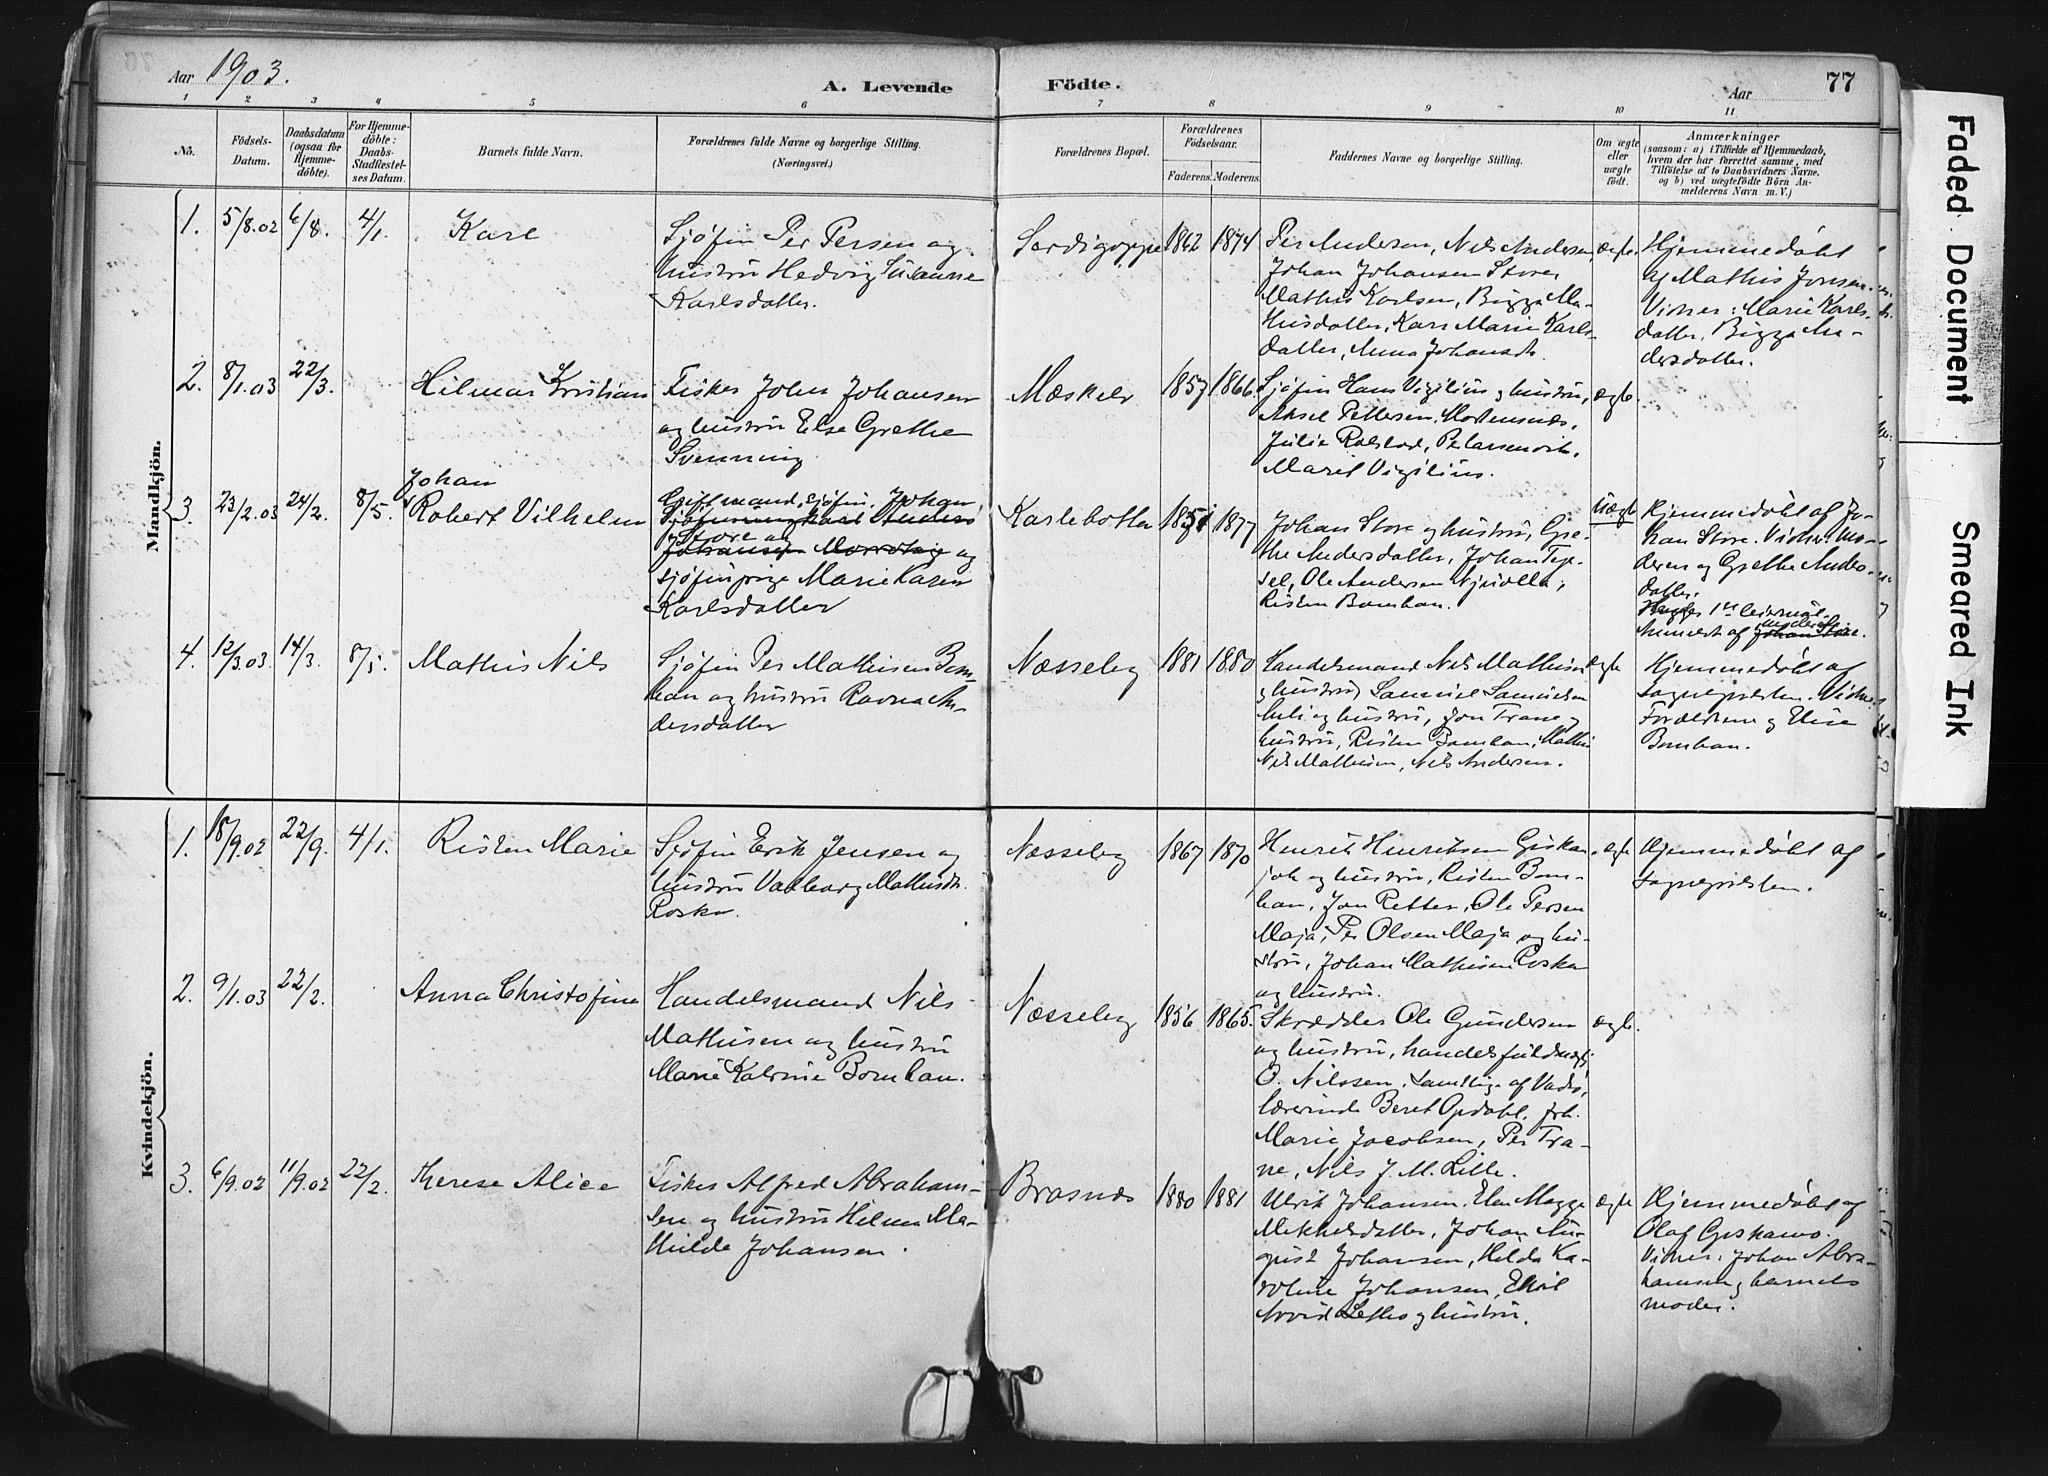 Aar 1903.
A. Levende
Födte.
Aar
77
1 2 3 4 5 6 7 8 9 10 11
No.
Födsels-
Datum.
Daabsdatum
(ogsaa for
Hjemme-
döbte).
For Hjemme-
döbte:
Daabs-
Stadfæstel-
ses Datum.
Barnets fulde Navn.
Forældrenes fulde Navne og borgerlige Stilling.
(Næringsvei.)
Forældrenes Bopæl.
Forældrenes
Födselsaar.
Faderens.
Moderens.
Faddernes Navne og borgerlige Stilling.
Om ægte
eller
uægte
født.
Anmærkninger
(saasom: a) i Tilfælde af Hjemmedaab,
hvem der har forrettet samme, med
Tilföielse af to Daabsvidners Navne,
og b) ved uægtefödte Börn An-
melderens Navn m. V.)
Mandkjön.
1.
5/8.02
6/8.
4/1.
Karl
Sjöfin Per Persen og
hustru Hedvig Susanne
Karlsdatter.
1862
1874
Per Andersen, Nils Andersen,
Johan Johansen Store,
Mathis Karlsen, Bigga Ma-
thisdatter, Karn Marie Karls-
datter, Anna Johansdt.
ægte.
Hjemmedøbt
af Mathis Jonsen.
Vidner: Marie Karls-
datter, Bigga An-
dersdatter.
2.
8/1.03
22/3.
Hilmar Kristian
Fisker John Johansen
og hustru Else Grethe
Svenning
Mæskelv
1857
1866
Sjöfin Hans Vigilius og hustru,
Aksel Pettersen. Mortensnæs,
Julie Rolstad,
Marit Vigilius.
ægte.
3.
23/2.03
24/2.
8/5.
Johan
Robert Vilhelm
Giftmand, sjöfin. Johan
Store og
og
sjöfinpige Marie Karen
Karlsdatter
Karlebotten
1851
1877
Johan Store og hustru, Gre-
the Andersdatter, Johan
Ole Andersen Njuolla,
Risten Bomban.
Uægte
Hjemmedøbt af Jo-
han Store. Vidner: Mo-
deren og Grethe Anders-
datter.
1ste leiermaal.
Anmeldt af moderen Johan Store.
4.
12/3.03.
14/3.
8/5.
Mathis Nils
Sjöfin Per Mathisen Bom-
ban og hustru Ravna An-
dersdatter
Næsseby
1881
1880
Handelsmand Nils Mathisen
og hustru, Samuel Samuelsen
og hustru, Jon Trane og
hustru, Risten Bomban, Mathis
Nils Mathisen, Nils Andersen.
ægte
Hjemmedøbt af
sognepresten. Vidner
Forældrene og Elise
Bomban.
Kvindekjön.
1.
18/9.02
22/9.
4/1.
Risten Marie
Sjöfin Erik Jensen og
hustru Valborg Mathisdt.
Roska.
Næsseby
1867
1870
Henrik Henriksen Guska-
jok og hustru, Risten Bom-
ban, Jon Retter, Ole Persen
Maja, Per Olsen Maja og hu-
stru, Johan Mathisen Roska
og hustru.
ægte
Hjemmedøbt af
sognepresten.
2.
9/1.03
22/2.
Anna Christofine
Handelsmand Nils
Mathisen og hustru
Marie Katrine Bomban.
Næsseby
1856
1865.
Skrædder Ole Gundersen
og hustru, handelsfuldmægt.
O. Nilssen, samtlige af Vadsø,
lærerinde Beret Opdahl, frk.
Marie Jacobsen, Per Tra-
ne, Nils J. M. Lille.
ægte.
3.
6/9.02
11/9.02
22/2.
Therese Alice
Fisker Alfred Abraham-
sen og hustru Hilma Ma-
thilde Johansen.
Brasnæs
1880
1881
Ulrik Johansen, Elen Magga
Mikkelsdatter, Johan Au-
gust Johansen, Hilda Ka-
roline Johansen, Emil
Arvid og hustru.
ægte
Hjemmedøbt af
Olaf
Vidner: Johan Abra-
hamsen og barnets
moder.
Faded Document
Smeared Ink